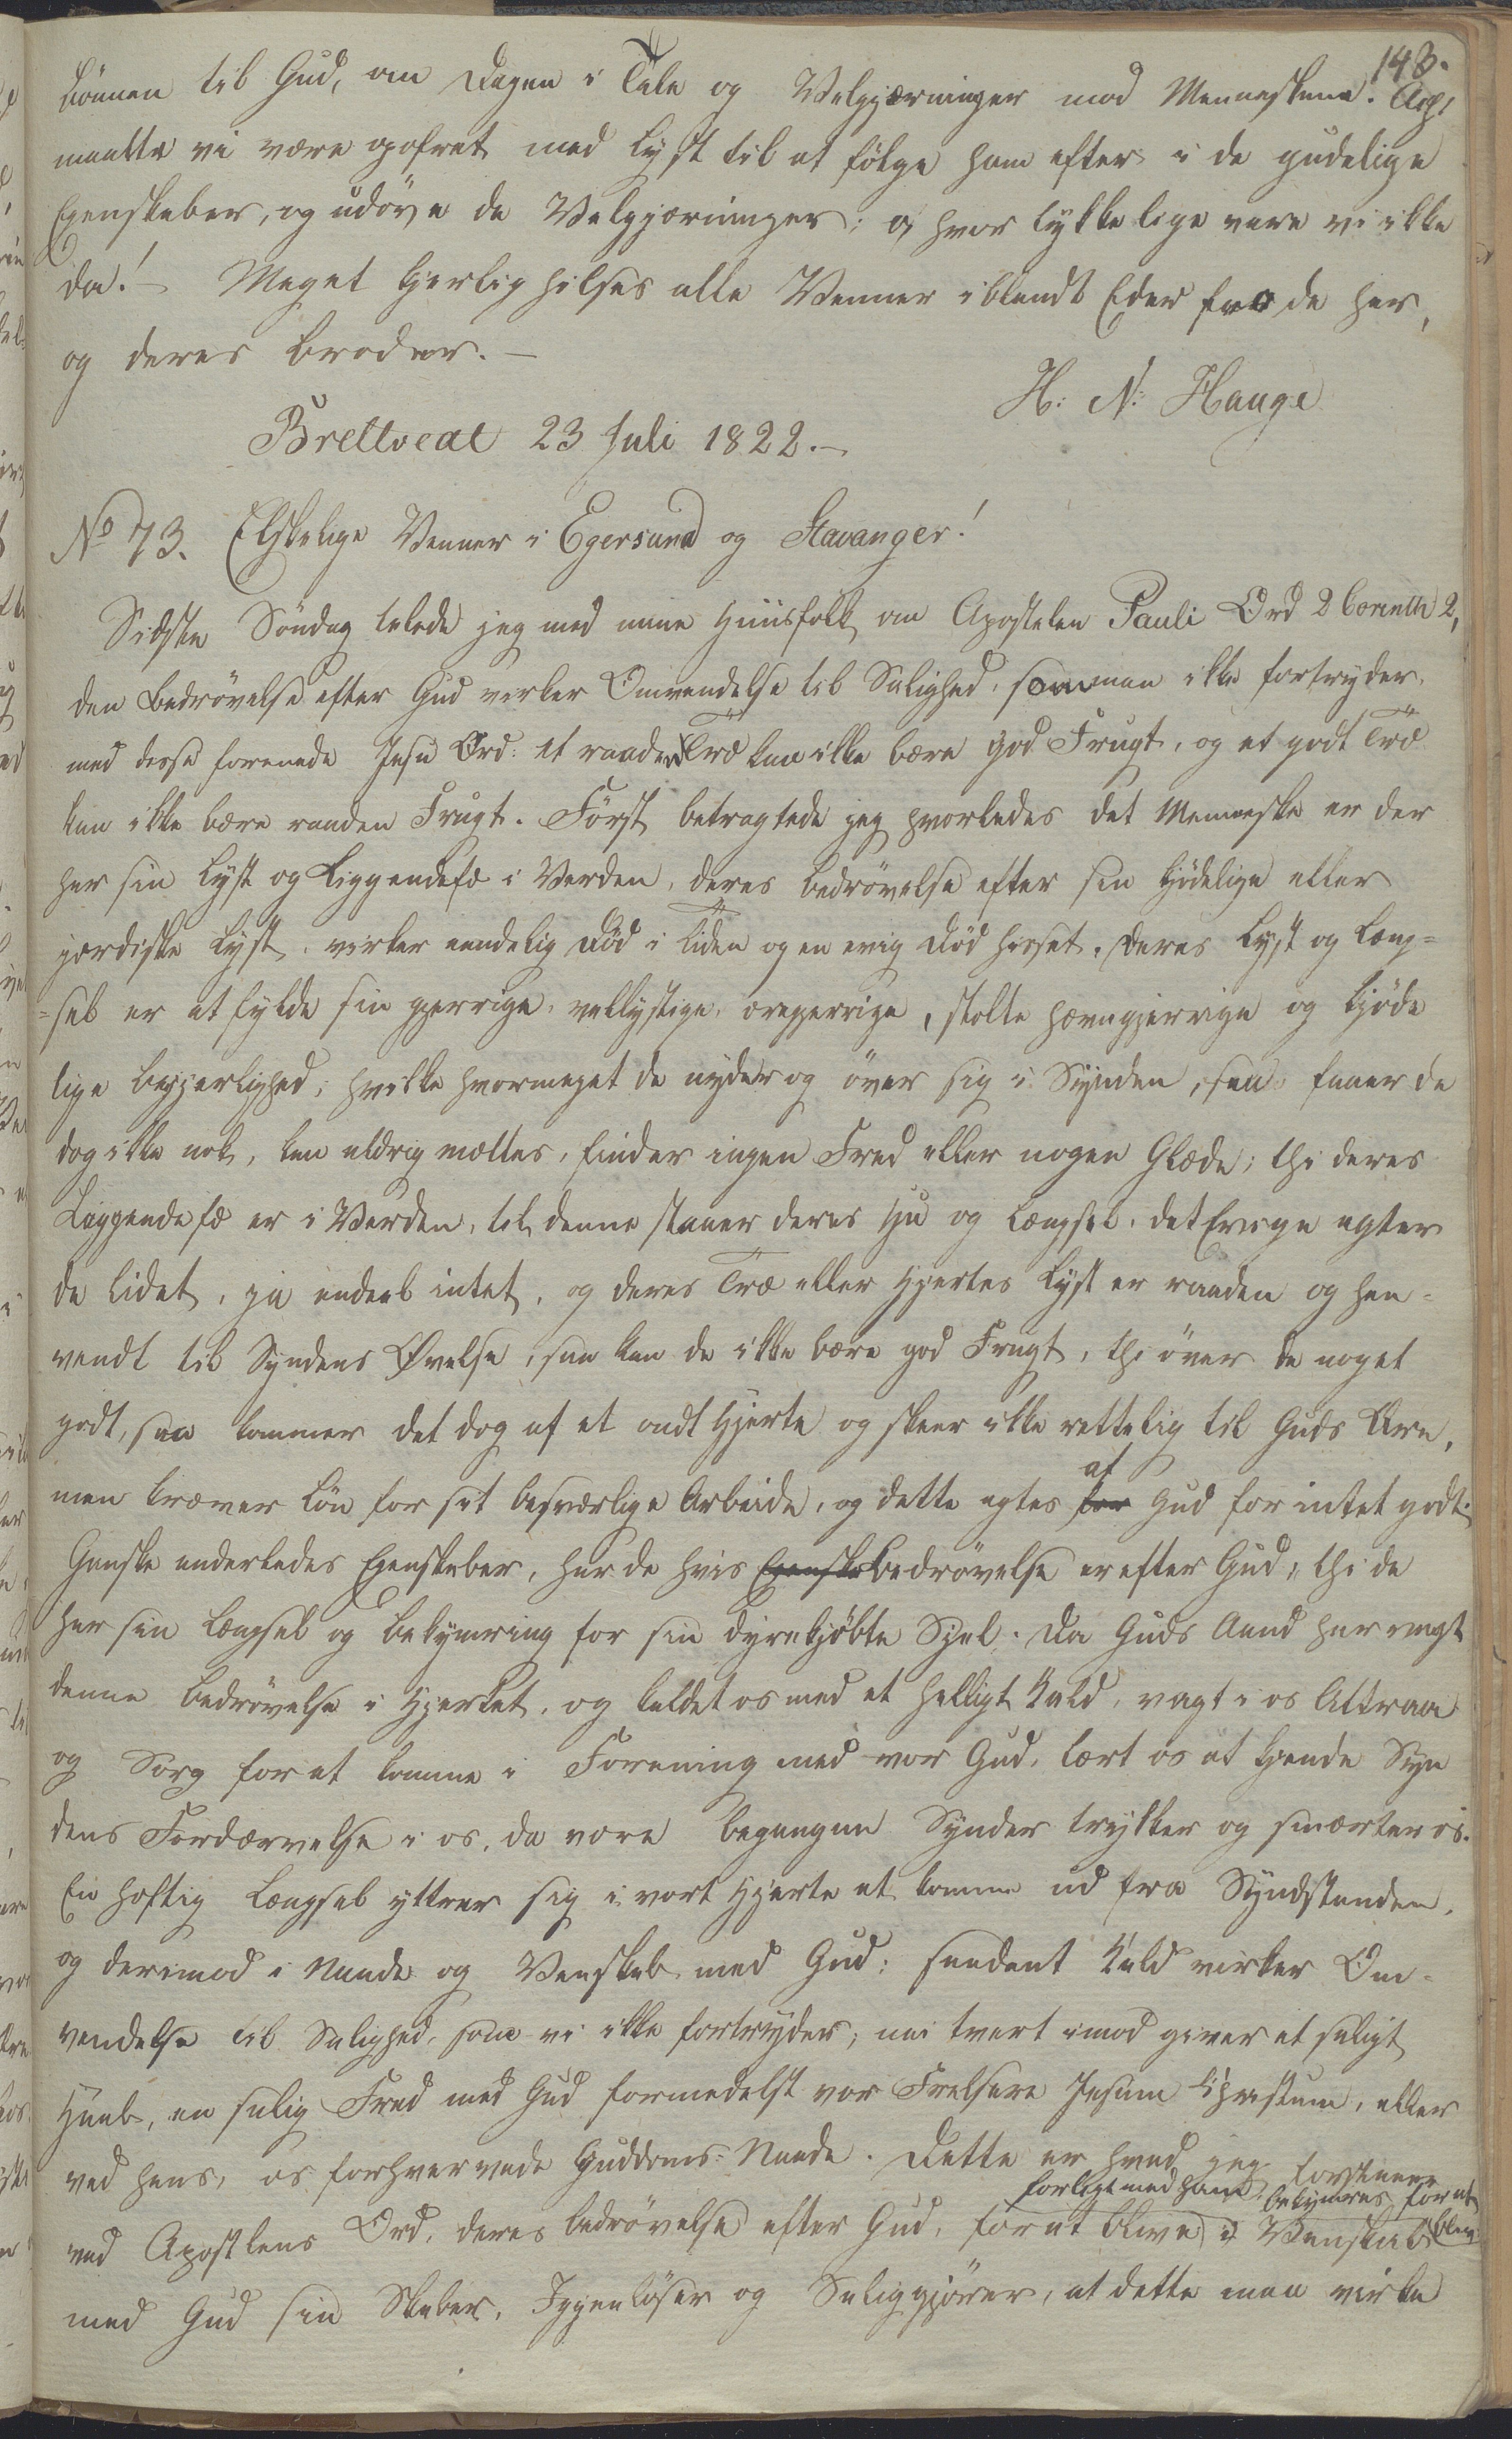 143.
Bönnen til Gud, om Dagen i Tale og Velgjærninger mod Menneskene. Ach!
maatte vi være opofret med Lyst til at følge ham efter i de gudelige
Egenskaber, og udöve de Velgjærninger; o, hvor lykkelige vare vi ikke
da! – Meget kjerlig hilses alle Venner iblandt Eder fra de her,
og deres Broder. –
H: N: Hauge
Brettvedt 23 Juli 1822. –
No 73. Elskelige Venner i Egersund og Stavanger!
Sidste Söndag talede jeg med mine Huusfolk om Apostelen Pauli Ord 2 Corinth 2,
den Bedrövelse efter Gud virker Omvendelse til Salighed, som man ikke fortryder,
med disse forenede Jesu Ord: et raadent Træ kan ikke bære god Frugt, og et godt Træ
kan ikke bære raaden Frugt. Först betragtede jeg hvorledes det Menneske er der
har sin Lyst og Liggendefæ i Verden, deres Bedrövelse efter sin kjödelige eller
jordiske Lyst, virker aandelig Död i Tiden og en evig Död hisset. Deres Lyst og Læng=
=sel er at fylde sin gjerrige, vellystige, ærgjerrige, stolte hævngjerrige og kjöde
lige Begjerlighed; hvilke hvormeget de nyder og över sig i Synden, saa faaer de
dog ikke nok, kan aldrig mættes, finder ingen Fred eller nogen Glæde; thi deres
Liggendefæ er i Verden, til denne staaer deres Hu og Længsel, det Evige agter
de lidet, ja endeel intet, og deres Træ eller Hjertes Lyst er raaden og hen=
vendt til Syndens Øvelse, saa kan de ikke bære god Frugt, thi över de noget
godt, saa kommer det dog af et ondt Hjerte og skeer ikke rettelig til Guds Ære,
men kræver Lön for sit besværlige Arbeide, og dette agtes for af Gud for intet godt.
Ganske anderledes Egenskaber, har de hvis Egenska Bedrövelse er efter Gud, thi de
har sin Længsel og Bekymring for sin dyrekjöbte Sjel. Da Guds Aand har vagt
denne Bedrövelse i Hjertet, og kaldet os med et helligt Kald, vagt i os Attraa
og Sorg for at komme i Forening med vor Gud, lært os at kjende Syn
dens Fordærvelse i os, da vore begangne Synder trykker og smærter os.
En heftig Længsel yttrer sig i vort Hjerte at komme ud fra Syndstanden,
og derimod i Naade og Venskab med Gud; saadant Kald virker Om=
vendelse til Salighed, som vi ikke fortryder; nei tvert imod giver et saligt
Haab, en salig Fred med Gud formedelst vor Frelsere Jesum Christum, eller
ved hans, os forhvervede Guddoms=Naade. Dette er hvad jeg forstaaer
forligt med ham, bekymres for at
ved Apostlens Ord, deres Bedrövelse efter Gud, for at blive i Venskab blive
med Gud sin Skaber, Igjenlöser og Saliggjörer, at dette maa virke